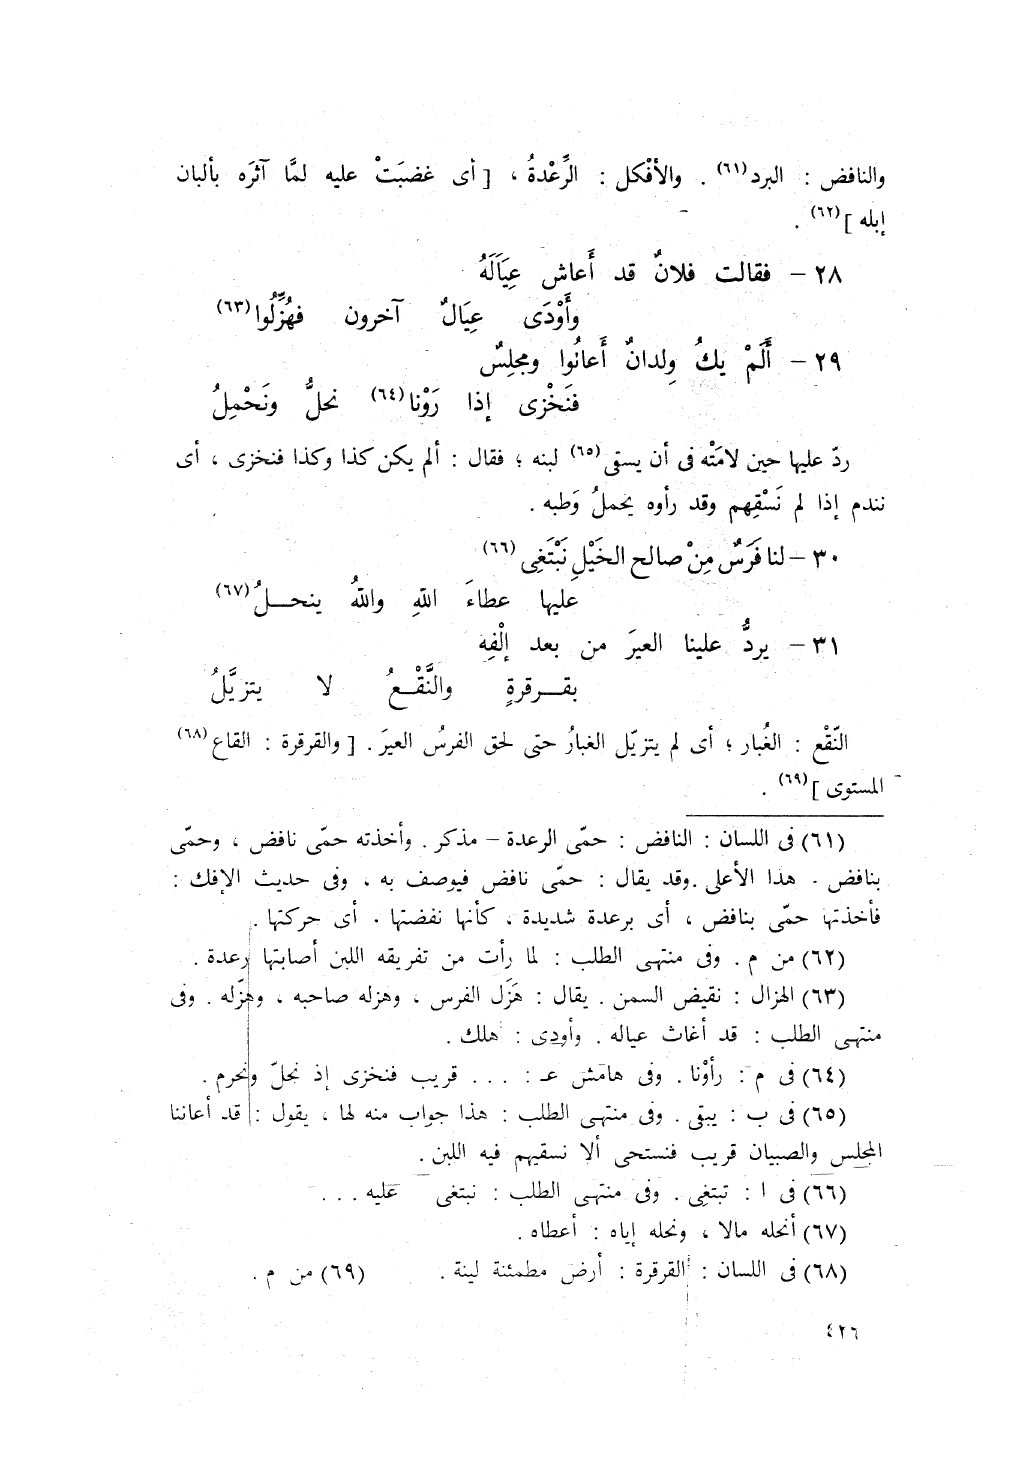 والنافض : البرد (٦١) . والأفْكل : الرِّعْدةُ ، [ أى غضبَتْ عليه لمَّا آثرَه بألبان
إبله ] (٦٢) .
٢٨ – فقالت فلانٌ قد أَعاش عِيَالَهُ
وأَوْدَى عِيَالٌ آخرون فهُزِّلُوا (٦٣)
٢٩ – أَلَمْ يكُ وِلدانٌ أَعانُوا ومجلِسٌ
فَنَخْزى إذا رَوْنا (٦٤) نحلُّ ونَحْمِلُ
ردّ عليها حين لامَتْه فى أن يسقى (٦٥) لبنه ؛ فقال : ألم يكن كذا وكذا فنخزى ، أى
نندم إذا لم نَسْقِهم وقد رأوه يحملُ وَطبه .
٣٠ – لنا فَرَسٌ مِنْ صالح الخَيْلِ نَبْتَغِى (٦٦)
عليها عطاءَ اللهِ واللهُ ينحـــلُ (٦٧)
٣١ – يردُّ علينا العيرَ من بعد إلْفِه
بقـــرقرةٍ والنَّقْـــعُ لا يتزيَّلُ
النّقْع : الغُبار ؛ أى لم يتزيّل الغبارُ حتى لحق الفرسُ العيرَ . [ والقرقرة : القاع (٦٨)
المستوى ] (٦٩) .
(٦١) فى اللسان : النافض : حمّى الرعدة – مذكر . وأخذته حمّى نافض ، وحمّى
بنافض . هذا الأعلى . وقد يقال : حمّى نافض فيوصف به ، وفى حديث الإفك :
فأخذتها حمّى بنافض ، أى برعدة شديدة ، كأنها نفضتها . أى حركتها .
(٦٢) من م . وفى منتهى الطلب : لما رأت من تفريقه اللبن أصابتها رعدة .
(٦٣) الهزال : نقيض السمن . يقال : هَزَل الفرس ، وهزله صاحبه ، وهزّله . وفى
منتهى الطلب : قد أغاث عياله . وأودى : هلك .
(٦٤) فى م : رأوْنا . وفى هامش عـ : . . . قريب فنخزى إذ نحلّ ونحرم .
(٦٥) فى ب : يبقى . وفى منتهى الطلب : هذا جواب منه لها ، يقول : قد أعاننا
المجلس والصبيان قريب فنستحى ألا نسقيهم فيه اللبن .
(٦٦) فى ا : تبتغِى . وفى منتهى الطلب : نبتغى عليه . . .
(٦٧) أنحله مالا ، ونحله إياه : أعطاه .
(٦٨) فى اللسان : القرقرة : أرض مطمئنة لينة . (٦٩) من م .
٤٢٦